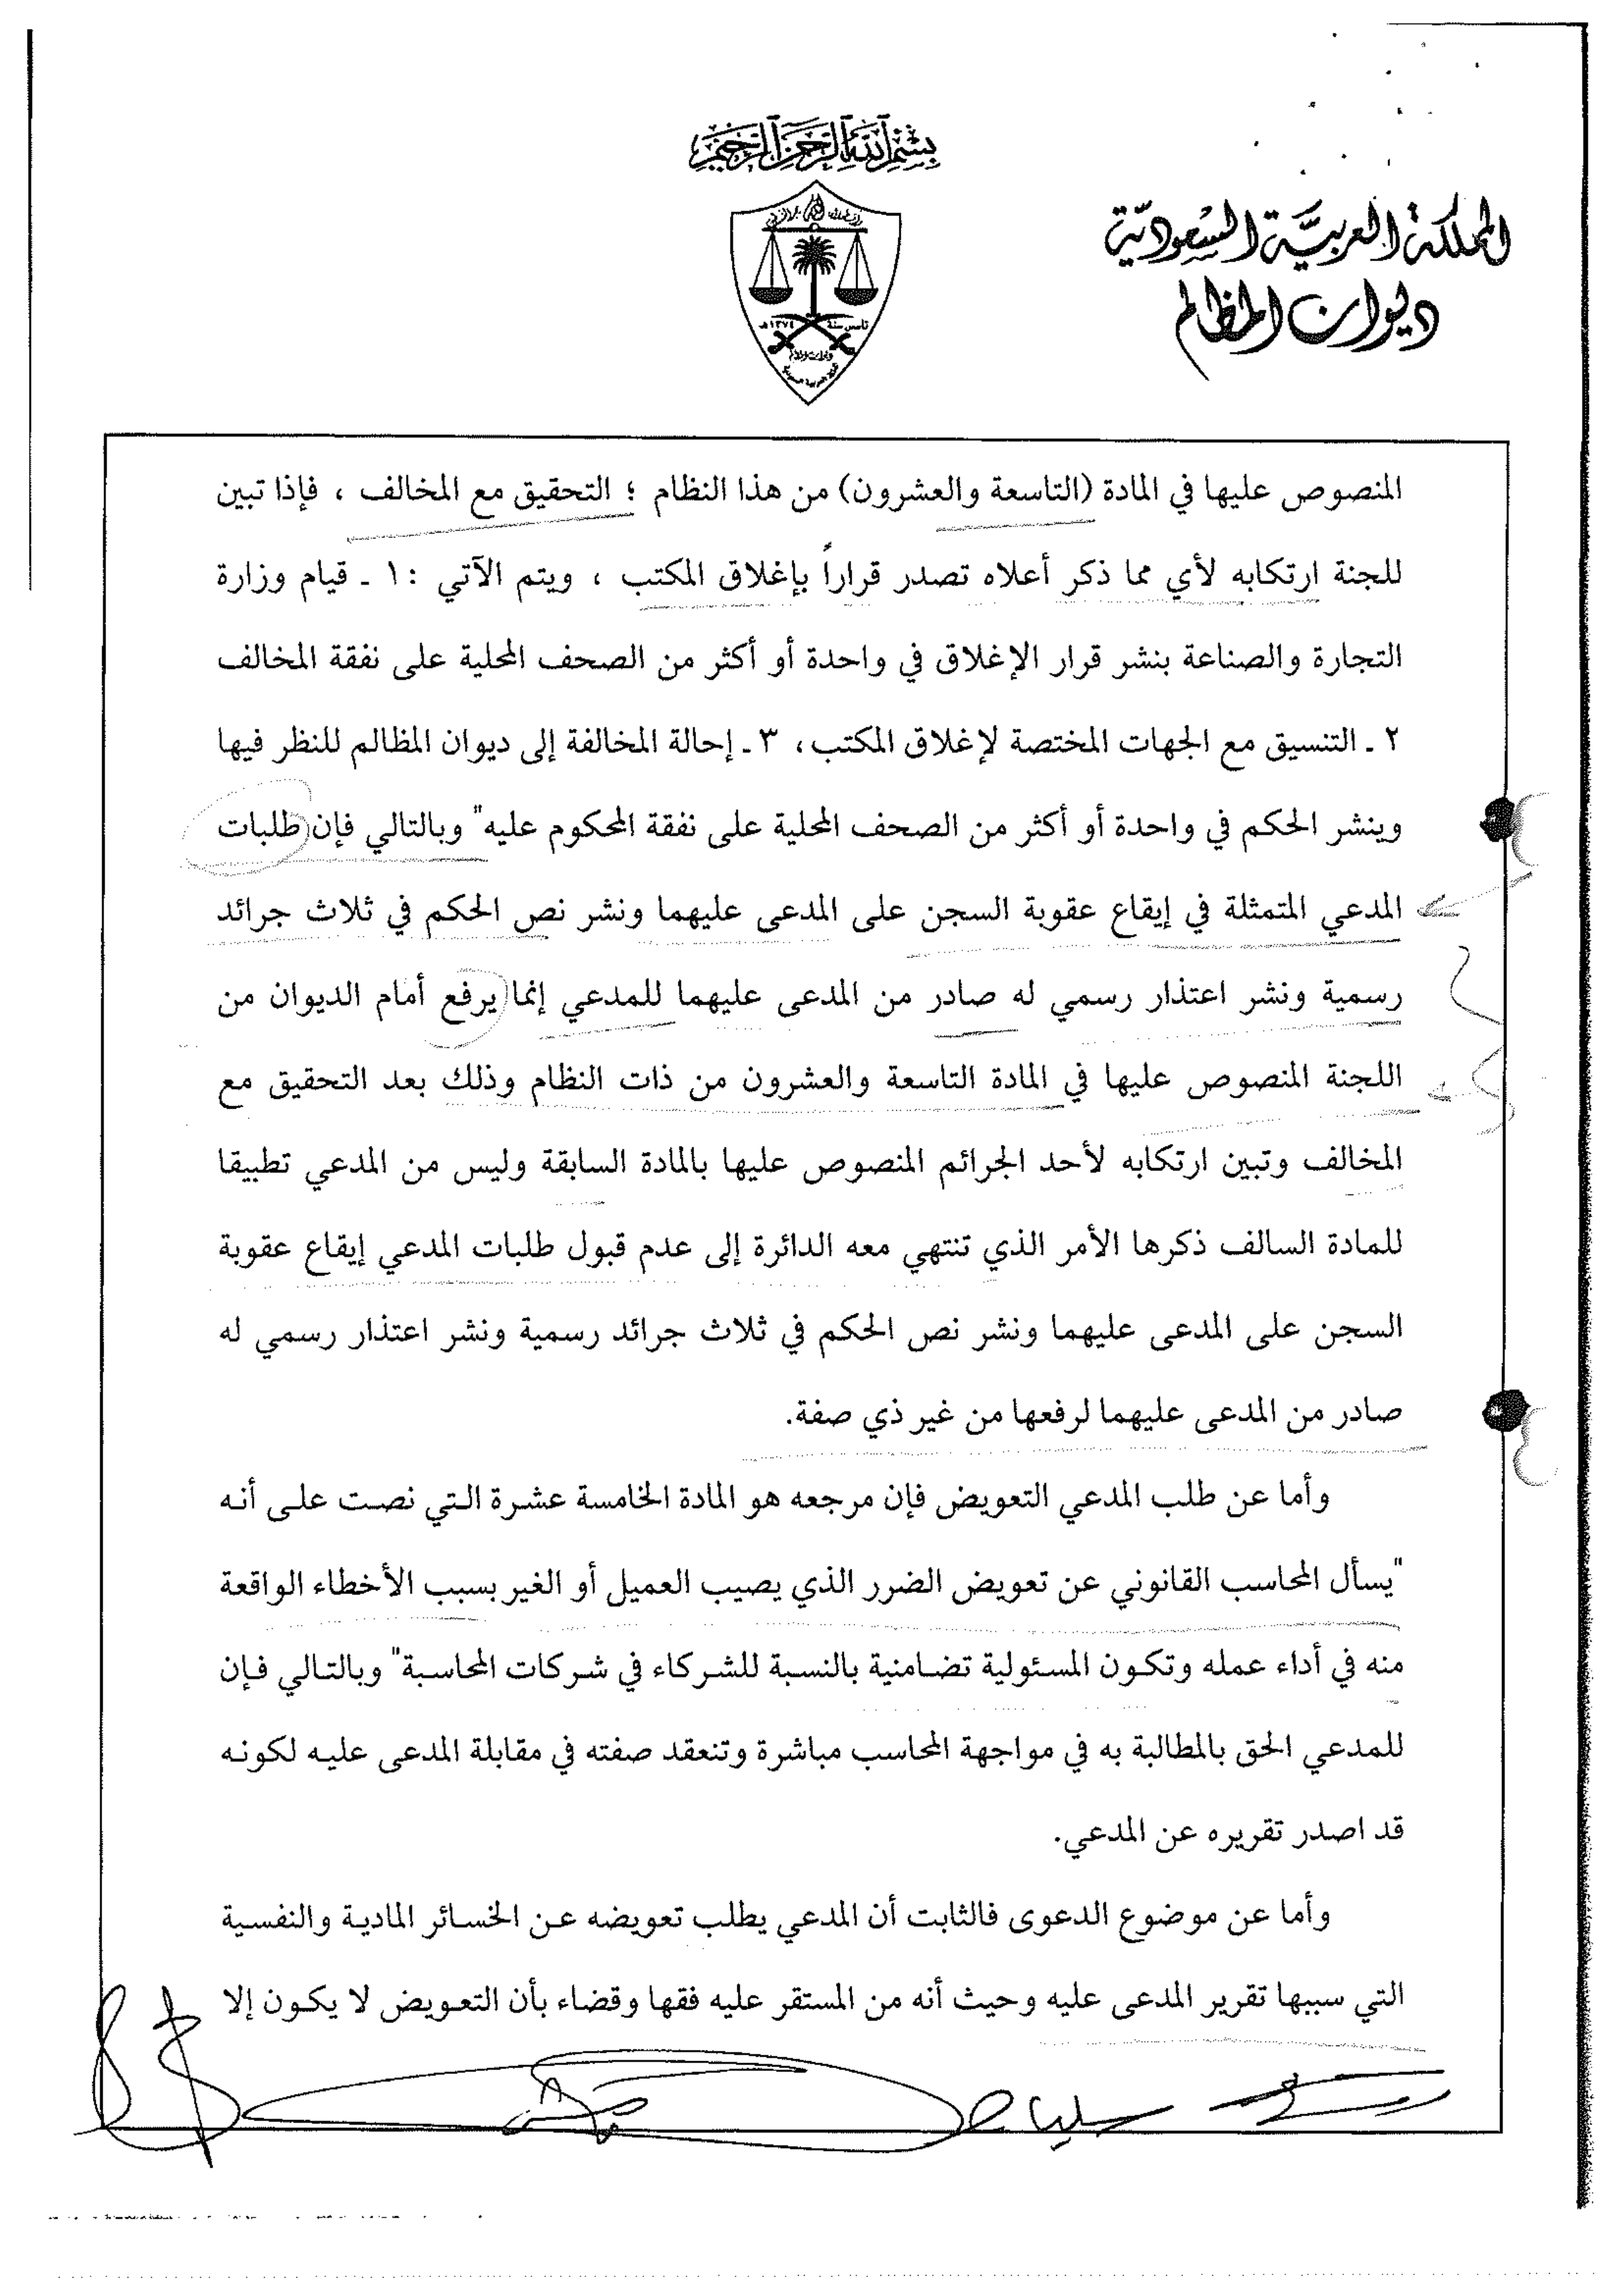 بسم الله الرحمن الرحيم
المملكة العربية السعودية
ديوان المظالم
تأسس سنة ١٣٧٤هـ
المنصوص عليها في المادة (التاسعة والعشرون) من هذا النظام ؛ التحقيق مع المخالف ، فإذا تبين
للجنة ارتكابه لأي مما ذكر أعلاه تصدر قراراً بإغلاق المكتب ، ويتم الآتي :١ ـ قيام وزارة
التجارة والصناعة بنشر قرار الإغلاق في واحدة أو أكثر من الصحف المحلية على نفقة المخالف
٢ ـ التنسيق مع الجهات المختصة لإغلاق المكتب، ٣ـ إحالة المخالفة إلى ديوان المظالم للنظر فيها
وينشر الحكم في واحدة أو أكثر من الصحف المحلية على نفقة المحكوم عليه" وبالتالي فإن طلبات
المدعي المتمثلة في إيقاع عقوبة السجن على المدعى عليهما ونشر نص الحكم في ثلاث جرائد
رسمية ونشر اعتذار رسمي له صادر من المدعى عليهما للمدعي إنما يرفع أمام الديوان من
اللجنة المنصوص عليها في المادة التاسعة والعشرون من ذات النظام وذلك بعد التحقيق مع
المخالف وتبين ارتكابه لأحد الجرائم المنصوص عليها بالمادة السابقة وليس من المدعي تطبيقا
للمادة السالف ذكرها الأمر الذي تنتهي معه الدائرة إلى عدم قبول طلبات المدعي إيقاع عقوبة
السجن على المدعى عليهما ونشر نص الحكم في ثلاث جرائد رسمية ونشر اعتذار رسمي له
صادر من المدعى عليهما لرفعها من غير ذي صفة.
وأما عن طلب المدعي التعويض فإن مرجعه هو المادة الخامسة عشرة التي نصت على أنه
"يسأل المحاسب القانوني عن تعويض الضرر الذي يصيب العميل أو الغير بسبب الأخطاء الواقعة
منه في أداء عمله وتكون المسئولية تضامنية بالنسبة للشركاء في شركات المحاسبة" وبالتالي فإن
للمدعي الحق بالمطالبة به في مواجهة المحاسب مباشرة وتنعقد صفته في مقابلة المدعى عليه لكونه
قد اصدر تقريره عن المدعي.
وأما عن موضوع الدعوى فالثابت أن المدعي يطلب تعويضه عن الخسائر المادية والنفسية
التي سببها تقرير المدعى عليه وحيث أنه من المستقر عليه فقها وقضاء بأن التعويض لا يكون إلا